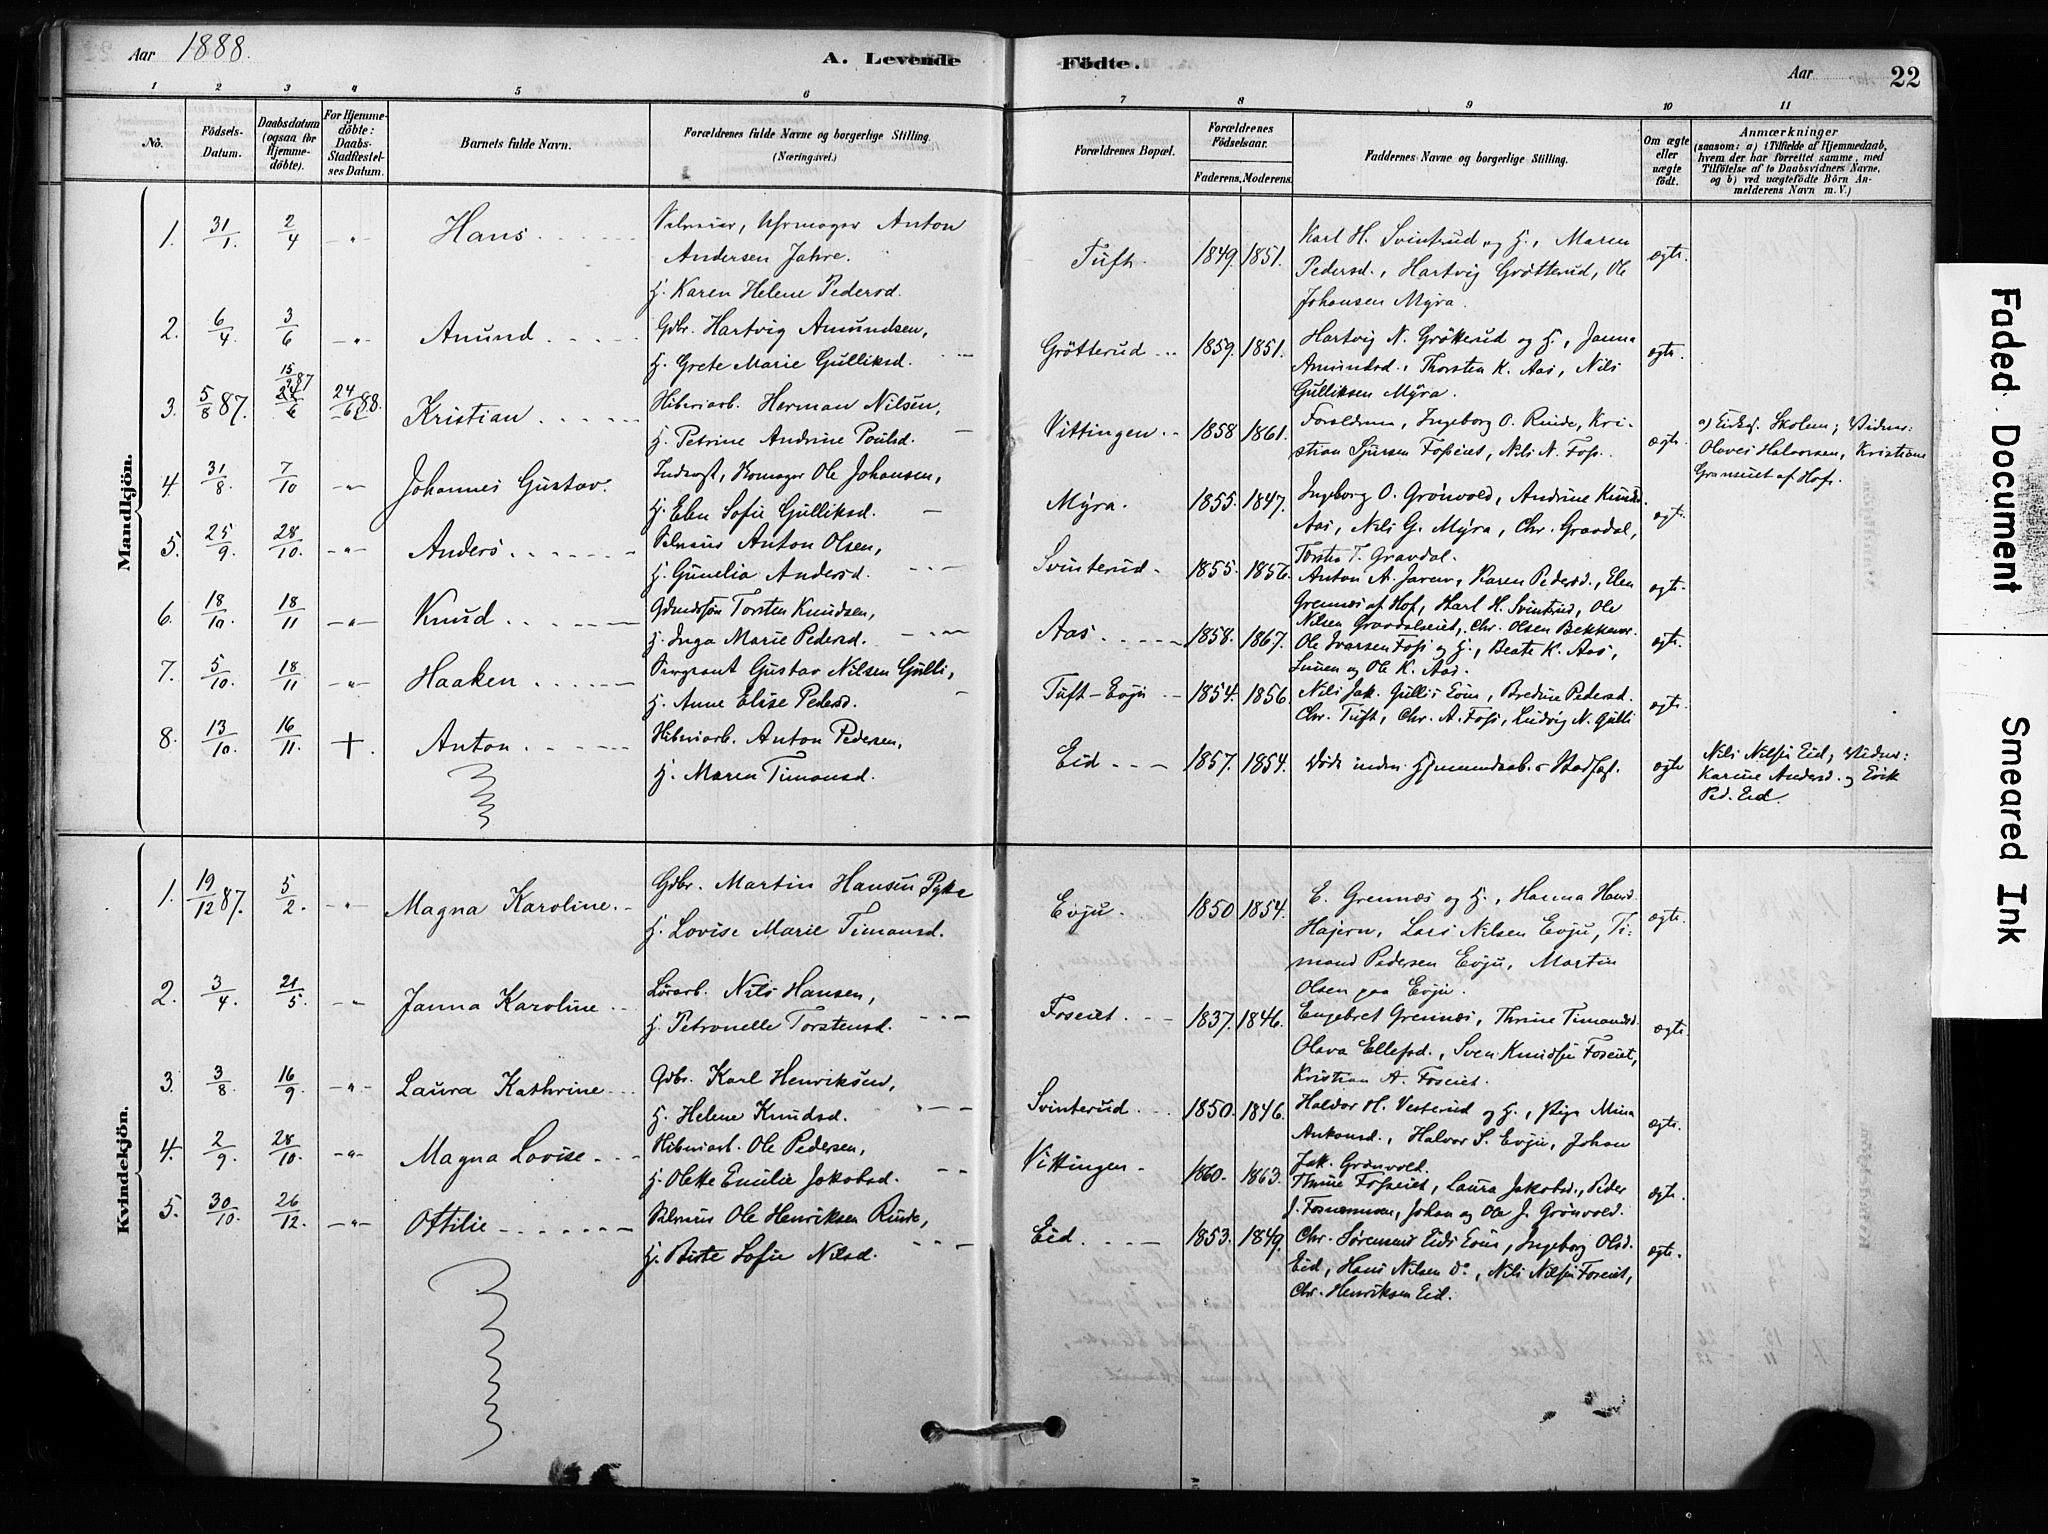 Aar 1888.
A. Levende Födte.
Aar
22
1 2 3 4 5 6 7 8 9 10 11
No.
Födsels-Datum.
Daabsdatum (ogsaa for Hjemmedöbte).
For Hjemmedöbte: Daabs-Stadfæstelses Datum.
Barnets fulde Navn.
Forældrenes fulde Navne og borgerlige Stilling. (Næringsvei.)
Forældrenes Bopæl.
Forældrenes Födselsaar.
Faderens. Moderens.
Faddernes Navne og borgerlige Stilling.
Om ægte eller uægte födt.
Anmærkninger
(saasom: a) i Tilfælde af Hjemmedaab, hvem der har forrettet samme, med Tilföielse af to Daabsvidners Navne, og b) ved uægtefödte Börn Anmelderens Navn m. V.)
Mandkjön.
1. 31/1. 2/4 -„- Hans
Anton
Andersen Jahre.
H. Karen Helene Pedersd.
Tuft. 1849. 1851.
Karl H. Svinterud og H., Maren
Pedersd., Hartvig Grötterud, Ole
Johansen Myra.
ægte.
2. 6/4. 3/6 -„- Amund
Gdbr. Hartvig Amundsen,
H. Grete Marie Gulliksd.
Grötterud 1859. 1851.
Hartvig N. Grötterud og H., Janna
Amundsd., Thorsten K. Aas, Nils
Gulliksen Myra.
ægte.
3. 5/8 87. 15/9 87 24/6 88. Kristian
Herman Nilsen,
H. Petrine Andrine Poulsd.
Vittingen 1858 1861.
Forældrene, Ingeborg O. Rinde, Kri-
stian Sjursen Fosseiet, Nils N. Foss.
ægte.
a) Skolem; Vidner:
Olaves Halvorsen, Kristiane
af Hof.
4. 31/8. 7/10 -„- Johannes Gustav.
Ole Johansen,
H. Elen Sofie Gulliksd.
Myra. 1855. 1847.
Ingeborg O. Grönvold, Andrine Knudsd.
Aas, Nils G. Myra, Chr. Gravdal,
Torsten T. Gravdal.
ægte.
5. 25/9. 28/10. -„- Anders
Anton Olsen,
H. Gunelia Andersd.
Svinterud. 1855. 1856.
Anton A. Karen Pedersd., Elen
Grennes af Hof, Karl H. Svintrud, Ole
Nilsen Gravdalseiet, Chr. Olsen
ægte.
6. 18/10. 18/11 -„- Knud
Torsten Knudsen,
H. Inga Marie Pedersd.
Aas 1858. 1867.
Ole Ivarsen Foss og H., Beate K. Aas,
og Ole K. Aas.
ægte.
7. 5/10. 18/11 -„- Haaken
Gustav Nilsen Gulli,
H. Anne Elise Pedersd.
Tuft-Evju 1854. 1856.
Nils Jak. Gulli Bredine Pedersd.
Chr. Tuft, Chr. A. Foss, Ludvig N. Gulli
ægte.
8. 13/10. 16/11. +. Anton
Anton Pedersen,
H. Maren Timansd.
Eid 1857. 1854.
Död inden Hjemmedaab. Stadf.
ægte
Nils Nilsen Eid; Vidner:
Karine Andersd. og Erik
Ped. Eid.
Kvindekjön.
1. 19/12 87. 5/2. -„- Magna Karoline.
Gdbr. Martin Hansen
H. Lovise Marie Timansd.
Evju. 1850 1854.
E. Grennes og H., Hanna Hansd.
Hajern, Lars Nilsen Evju, Ti-
mand Pedersen Evju, Martin
Olsen paa Evju.
ægte.
2. 3/4. 21/5. -„- Janna Karoline
Nils Hansen,
H. Petronelle Torstensd.
Foseiet. 1837. 1846.
Engebret Grennes, Thrine Timansd.
Olava Ellefsd., Sven Knudsen Foseiet,
Kristian A. Foseiet.
ægte.
3. 3/8 16/9 -„- Laura Kathrine
Gdbr. Karl Henriksen,
H. Helene Knudsd.
Svinterud 1850. 1846.
Haldor H. Vesterud og H., Pige Mina
Antonsd., Halvor S. Evju, Johan
Jak. Grönvold.
ægte.
4. 2/9. 28/10. -„- Magna Lovise
Ole Pedersen,
H. Olette Emilie Jakobsd.
Vittingen 1860. 1863.
Thrine Fosseiet, Laura Jakobsd., Peder
J. Johan og Ole J. Grönvold.
ægte.
5. 30/10. 26/12. -„- Ottilie
Ole Henriksen Rinde,
H. Birte Sofie Nilsd.
Eid. 1853. 1849.
Chr. Sörensen Ingeborg Olsd.
Eid, Hans Nilsen Do., Nils Nilsen Foseiet,
Chr. Henriksen Eid.
ægte.
Faded Document
Smeared Ink